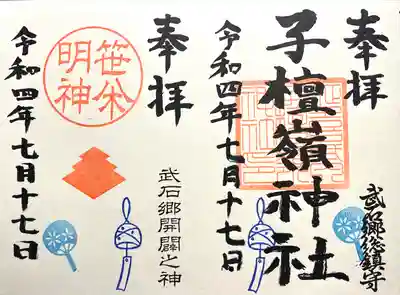 奉拝
子檀嶺神社
武石郷総鎮守
令和四年七月十七日
奉拝
笹焼明神
武石郷開闢之神
令和四年七月十七日